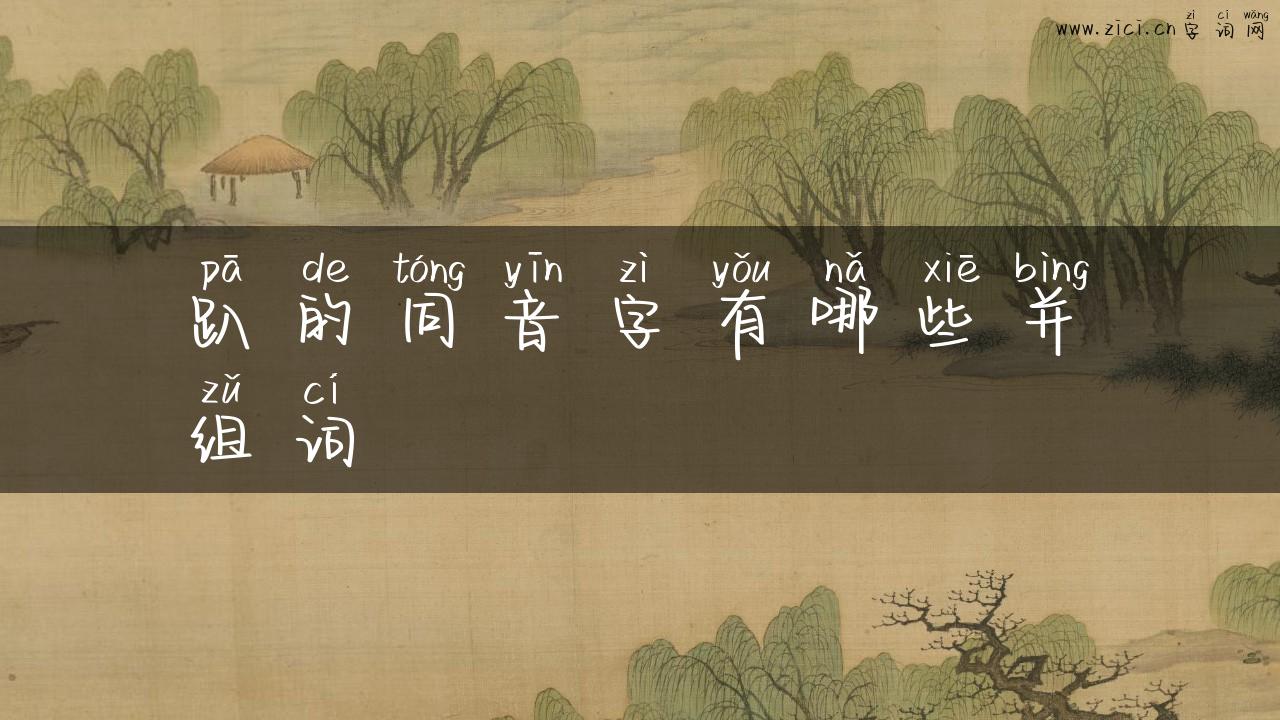 zì cí wǎng
www.zici.cn 字词网
pā de tóng yīn zì yǒu nǎ xiē bìng
趴的同音字有哪些并
zǔ cí
组词